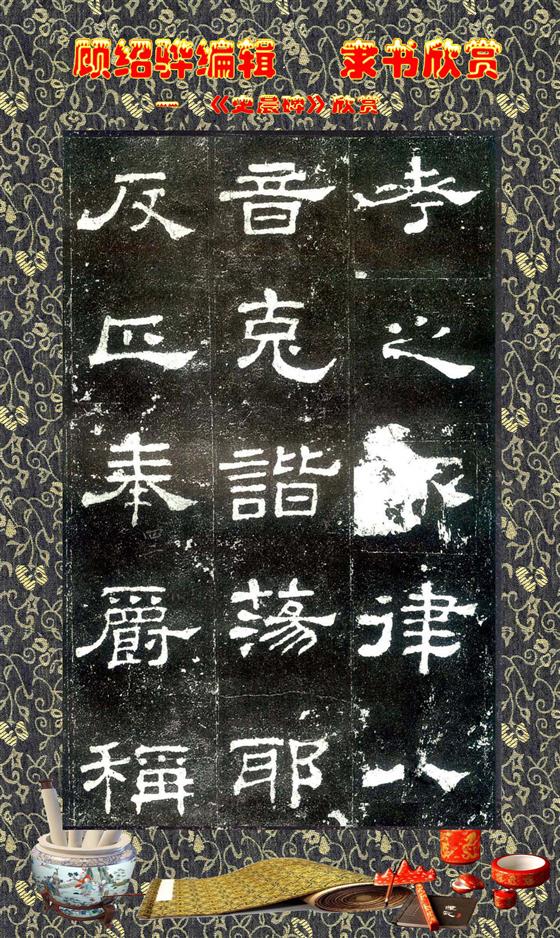 顾绍骅编辑 隶书欣赏
《史晨碑》欣赏
考之律八
音克諧蕩耶
反正奉爵稱